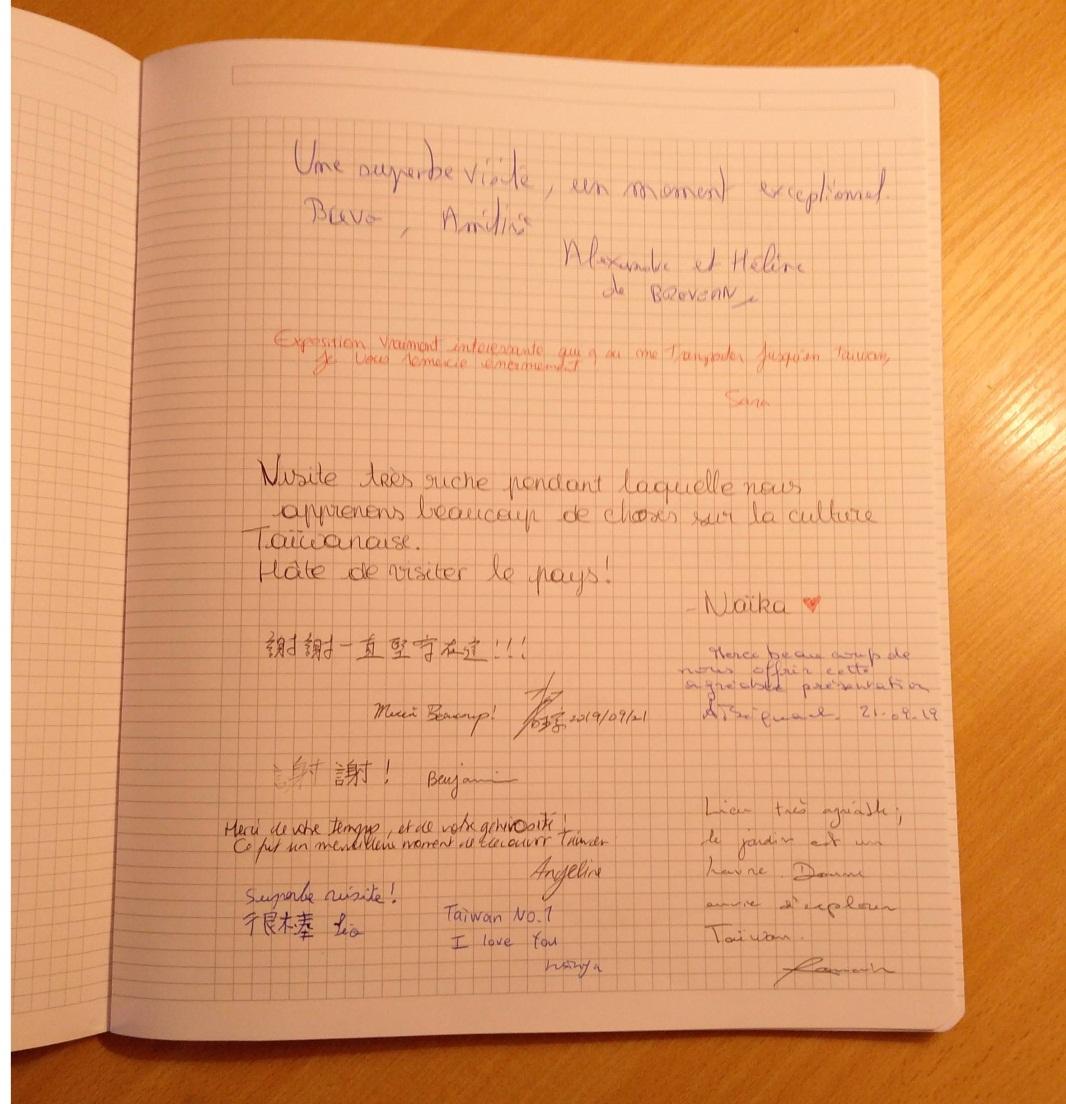 Une superbe visite, un moment exceptionnel.
Bravo, Amitié
Alexandre et Hélène
de
Exposition vraiment intéressante qui a su me transporter jusqu'en Taïwan,
je vous remercie énormément
Sara
Visite très riche pendant laquelle nous
apprenons beaucoup de choses sur la culture
Taïwanaise.
Hâte de visiter le pays!
- Naïka
謝謝一直堅守在這!!!
Merci Beaucoup! 2019/09/21
Merci beaucoup de
nous offrir cette
agréable présentation
21-09-19
謝謝! Benjamin
Merci de votre temps, et de votre générosité!
Ce fut un merveilleux moment de découvrir Taiwan
Angeline
Superbe visite!
很棒
Taiwan No.1
I love You
Lieu très agréable;
le jardin est un
havre. Donne
envie d'explorer
Taiwan.
Romain